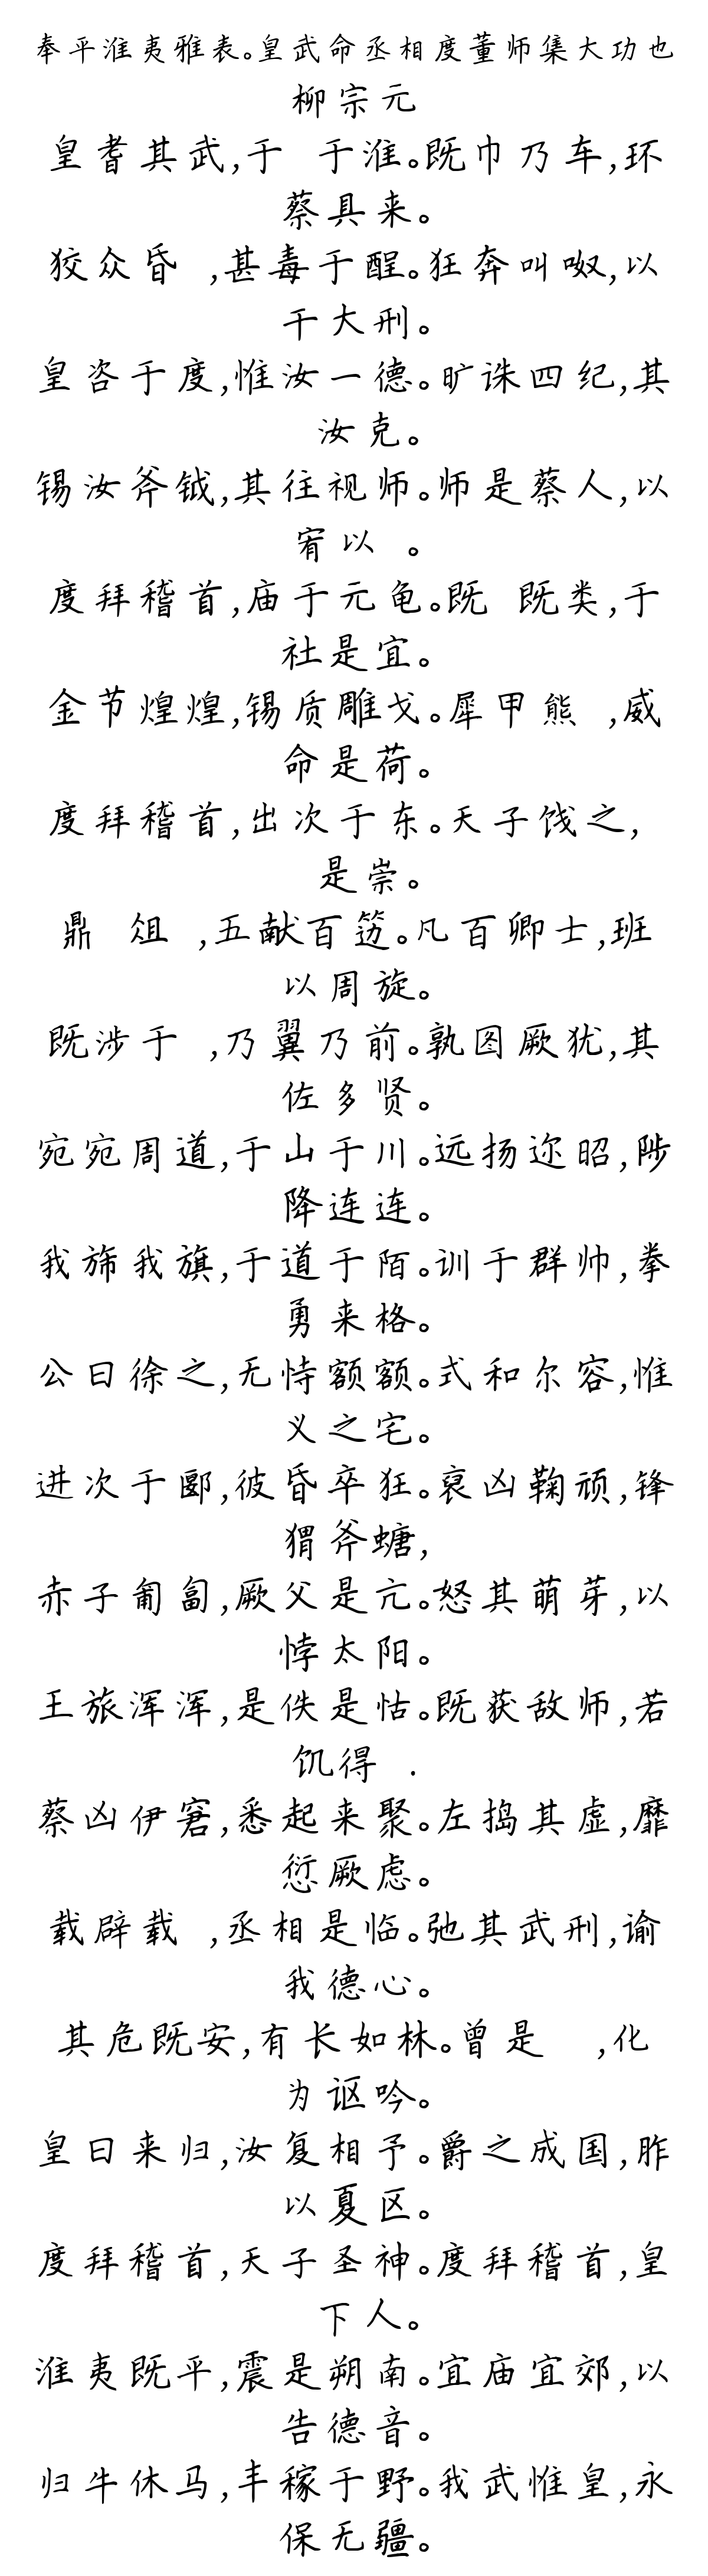 奉平淮夷雅表。皇武命丞相度董师集大功也
柳宗元
皇耆其武,于 于淮。既巾乃车,环
蔡具来。
狡众昏 ,甚毒于酲。狂奔叫呶,以
干大刑。
皇咨于度,惟汝一德。旷诛四纪,其
汝克。
锡汝斧钺,其往视师。师是蔡人,以
宥以 。
度拜稽首,庙于元龟。既 既类,于
社是宜。
金节煌煌,锡质雕戈。犀甲熊 ,威
命是荷。
度拜稽首,出次于东。天子饯之,
是崇。
鼎 俎 ,五献百笾。凡百卿士,班
以周旋。
既涉于 ,乃翼乃前。孰图厥犹,其
佐多贤。
宛宛周道,于山于川。远扬迩昭,陟
降连连。
我旆我旗,于道于陌。训于群帅,拳
勇来格。
公曰徐之,无恃额额。式和尔容,惟
义之宅。
进次于郾,彼昏卒狂。裒凶鞠顽,锋
猬斧螗,
赤子匍匐,厥父是亢。怒其萌芽,以
悖太阳。
王旅浑浑,是佚是怙。既获敌师,若
饥得 .
蔡凶伊窘,悉起来聚。左捣其虚,靡
愆厥虑。
载辟载 ,丞相是临。弛其武刑,谕
我德心。
其危既安,有长如林。曾是  ,化
为讴吟。
皇曰来归,汝复相予。爵之成国,胙
以夏区。
度拜稽首,天子圣神。度拜稽首,皇
下人。
淮夷既平,震是朔南。宜庙宜郊,以
告德音。
归牛休马,丰稼于野。我武惟皇,永
保无疆。